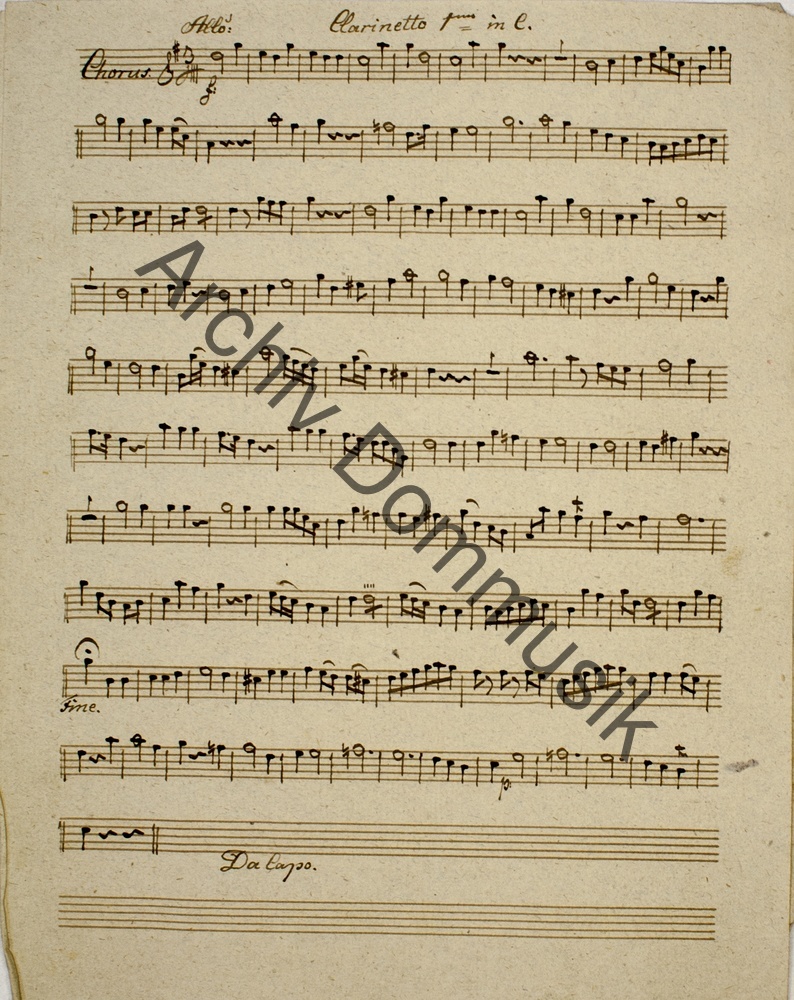 Allo: Clarinetto 1mo in C.
Chorus.
f:
Fine.
p:
Da Capo.
Archiv Dommusik